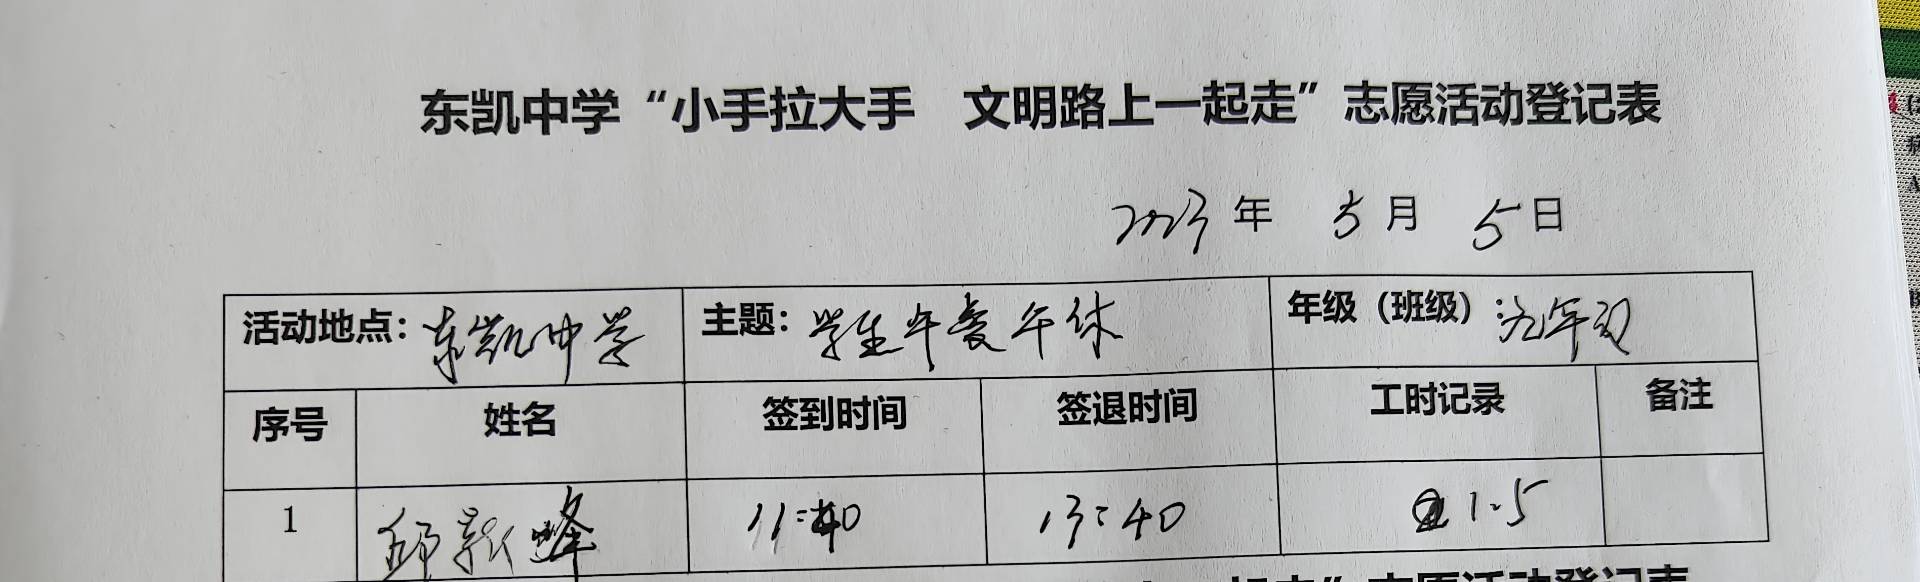 东凯中学“小手拉大手 文明路上一起走”志愿活动登记表
2023年 5月 5日
活动地点：东凯中学 主题：学生午餐午休 年级（班级）：九年
序号 姓名 签到时间 签退时间 工时记录 备注
1 11:40 13:40 1.5